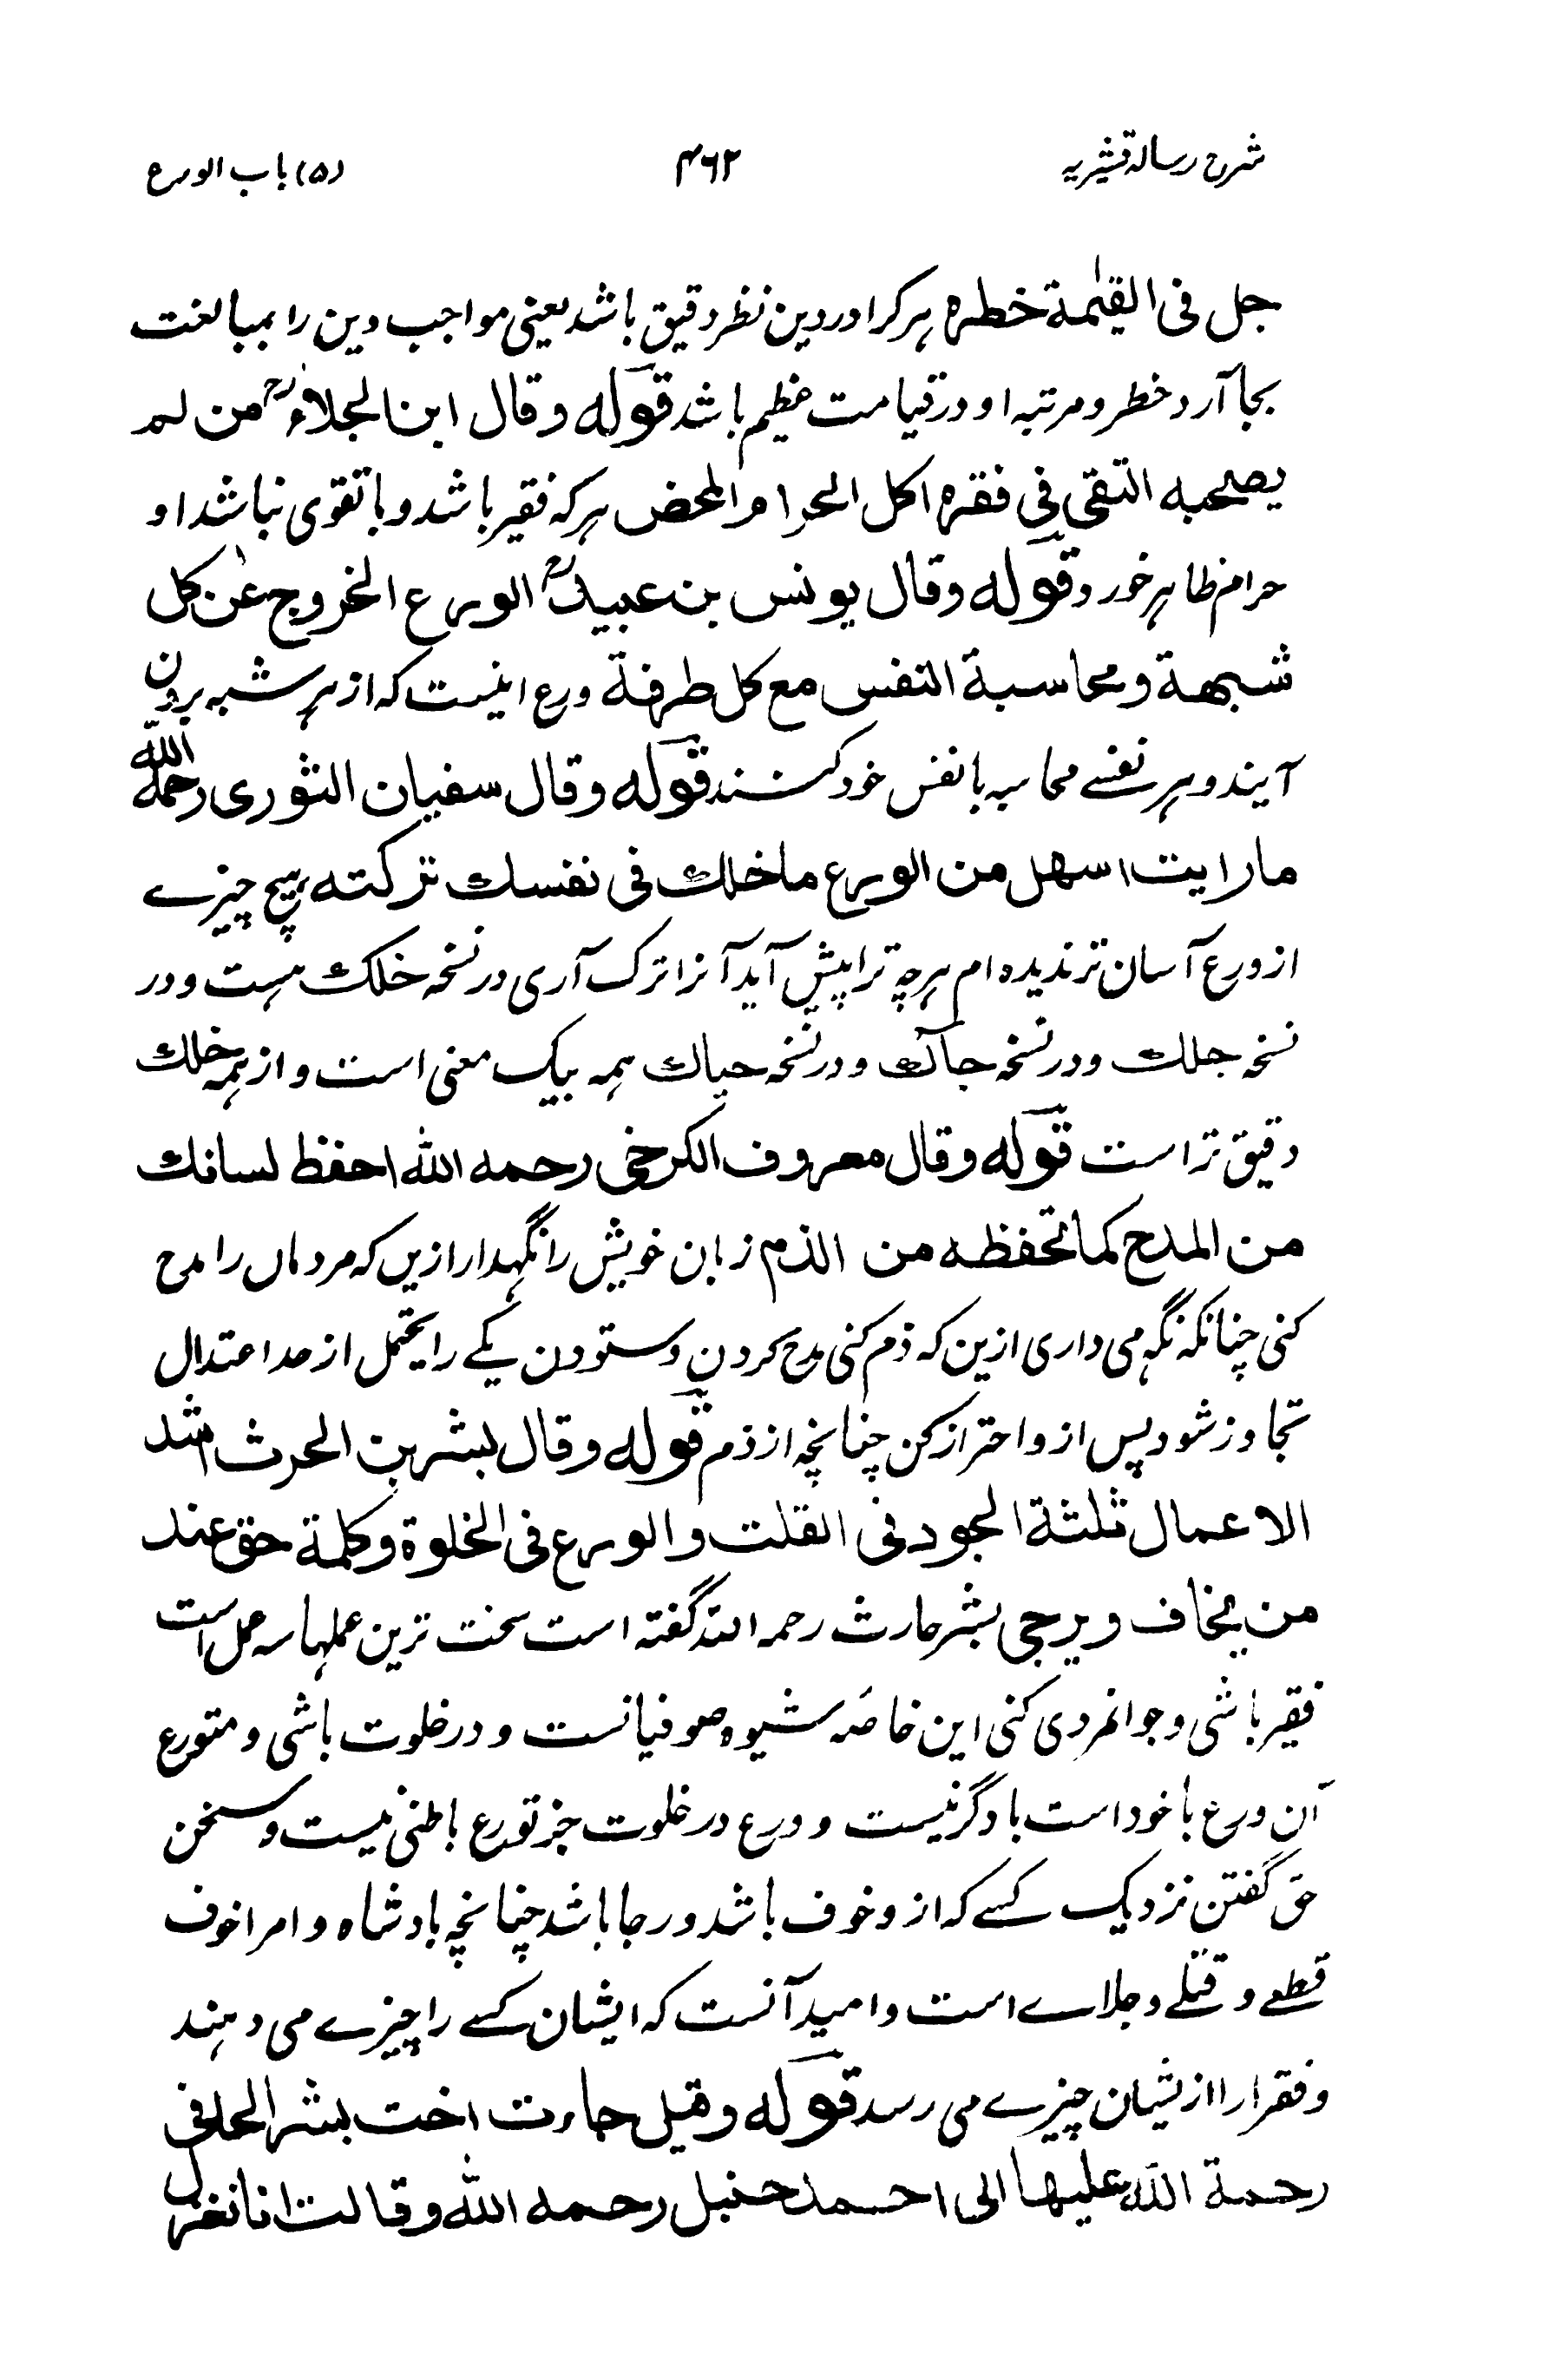 شرح رسالہ قشیریہ ۴۶۲ (۵) باب الورع
جل فی القیٰمة خطره ہر کرا در دین نظر دقیق باشد یعنی مواجب دین را بمبالغت
بجا آرد خطر و مرتبہ او در قیامت عظیم باشد قوله وقال ابن الجلاءؒ من لم
یصحبه التقی فی فقره اکل الحرام المحض ہر کہ فقیر باشد و با تقوی نباشد او
حرام ظاہر خورد قوله وقال یونس بن عبیدؒ الورع الخروج عن کل
شبهة ومحاسبة النفس مع کل طرفة ورع اینست کہ از ہر شبہ برون
آیند و ہر نفسے محاسبہ با نفس خود کنند قوله وقال سفیان الثوری رحمه الله
ما رایت اسهل من الورع ما حك فی نفسك ترکته ہیچ چیزے
از ورع آسان تر ندیدہ ام ہرچہ ترا پیش آید آنرا ترک آری در نسخہ خلك ہست و در
نسخہ جللك و در نسخہ جآك و در نسخہ حیاك ہمہ بیک معنی است و از ہمہ خلك
دقیق تر است قوله وقال معروف الکرخی رحمه الله احفظ لسانك
من المدح کما تحفظه من الذم زبان خویش را نگہدار ازیں کہ مردماں را مدح
کنی چنانکہ نگہ می داری ازین کہ ذم کنی مدح کردن و ستودن یکے را یحتمل از حد اعتدال
تجاوز شود پس ازو احتراز کن چنانچہ از ذم قوله وقال بشر بن الحرث اشد
الاعمال ثلثة الجود فی القلت والورع فی الخلوة وکلمة حق عند
من یخاف ویرجی بشر حارث رحمہ اللہ گفتہ است سخت ترین عملہا سہ عمل است
فقیر باشی و جوانمردی کنی این خاصّہ شیوہ صوفیانست و در خلوت باشی و متورع
آن ورع با خود است با دگر نیست و ورع در خلوت جز تورع باطنی نیست و سخن
حق گفتن نزدیک کسے کہ ازو خوف باشد و رجا باشد چنانچہ بادشاہ و امرا خوف
قطعے و قتلے و جلاے است و امید آنست کہ ایشان کسے را چیزے می دہند
و فقرا را ازیشان چیزے می رسد قوله وقیل جاءت اخت بشر الحافی
رحمة الله علیها الی احمد حنبل رحمه الله وقالت انا نغزل